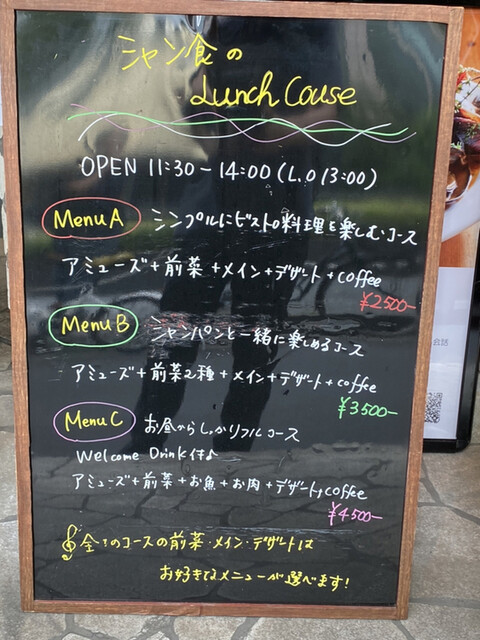 シャン食の
Lunch Couse
OPEN 11:30-14:00 (L.O 13:00)
Menu A シンプルにビストロ料理を楽しむコース
アミューズ+前菜+メイン+デザート+coffee
¥2500-
Menu B シャンパンと一緒に楽しめるコース
アミューズ+前菜2種+メイン+デザート+coffee
¥3500-
Menu C お昼からしっかりフルコース
Welcome Drink付♪
アミューズ+前菜+お魚+お肉+デザート+coffee
¥4500-
全てのコースの前菜・メイン・デザートは
お好きなメニューが選べます!